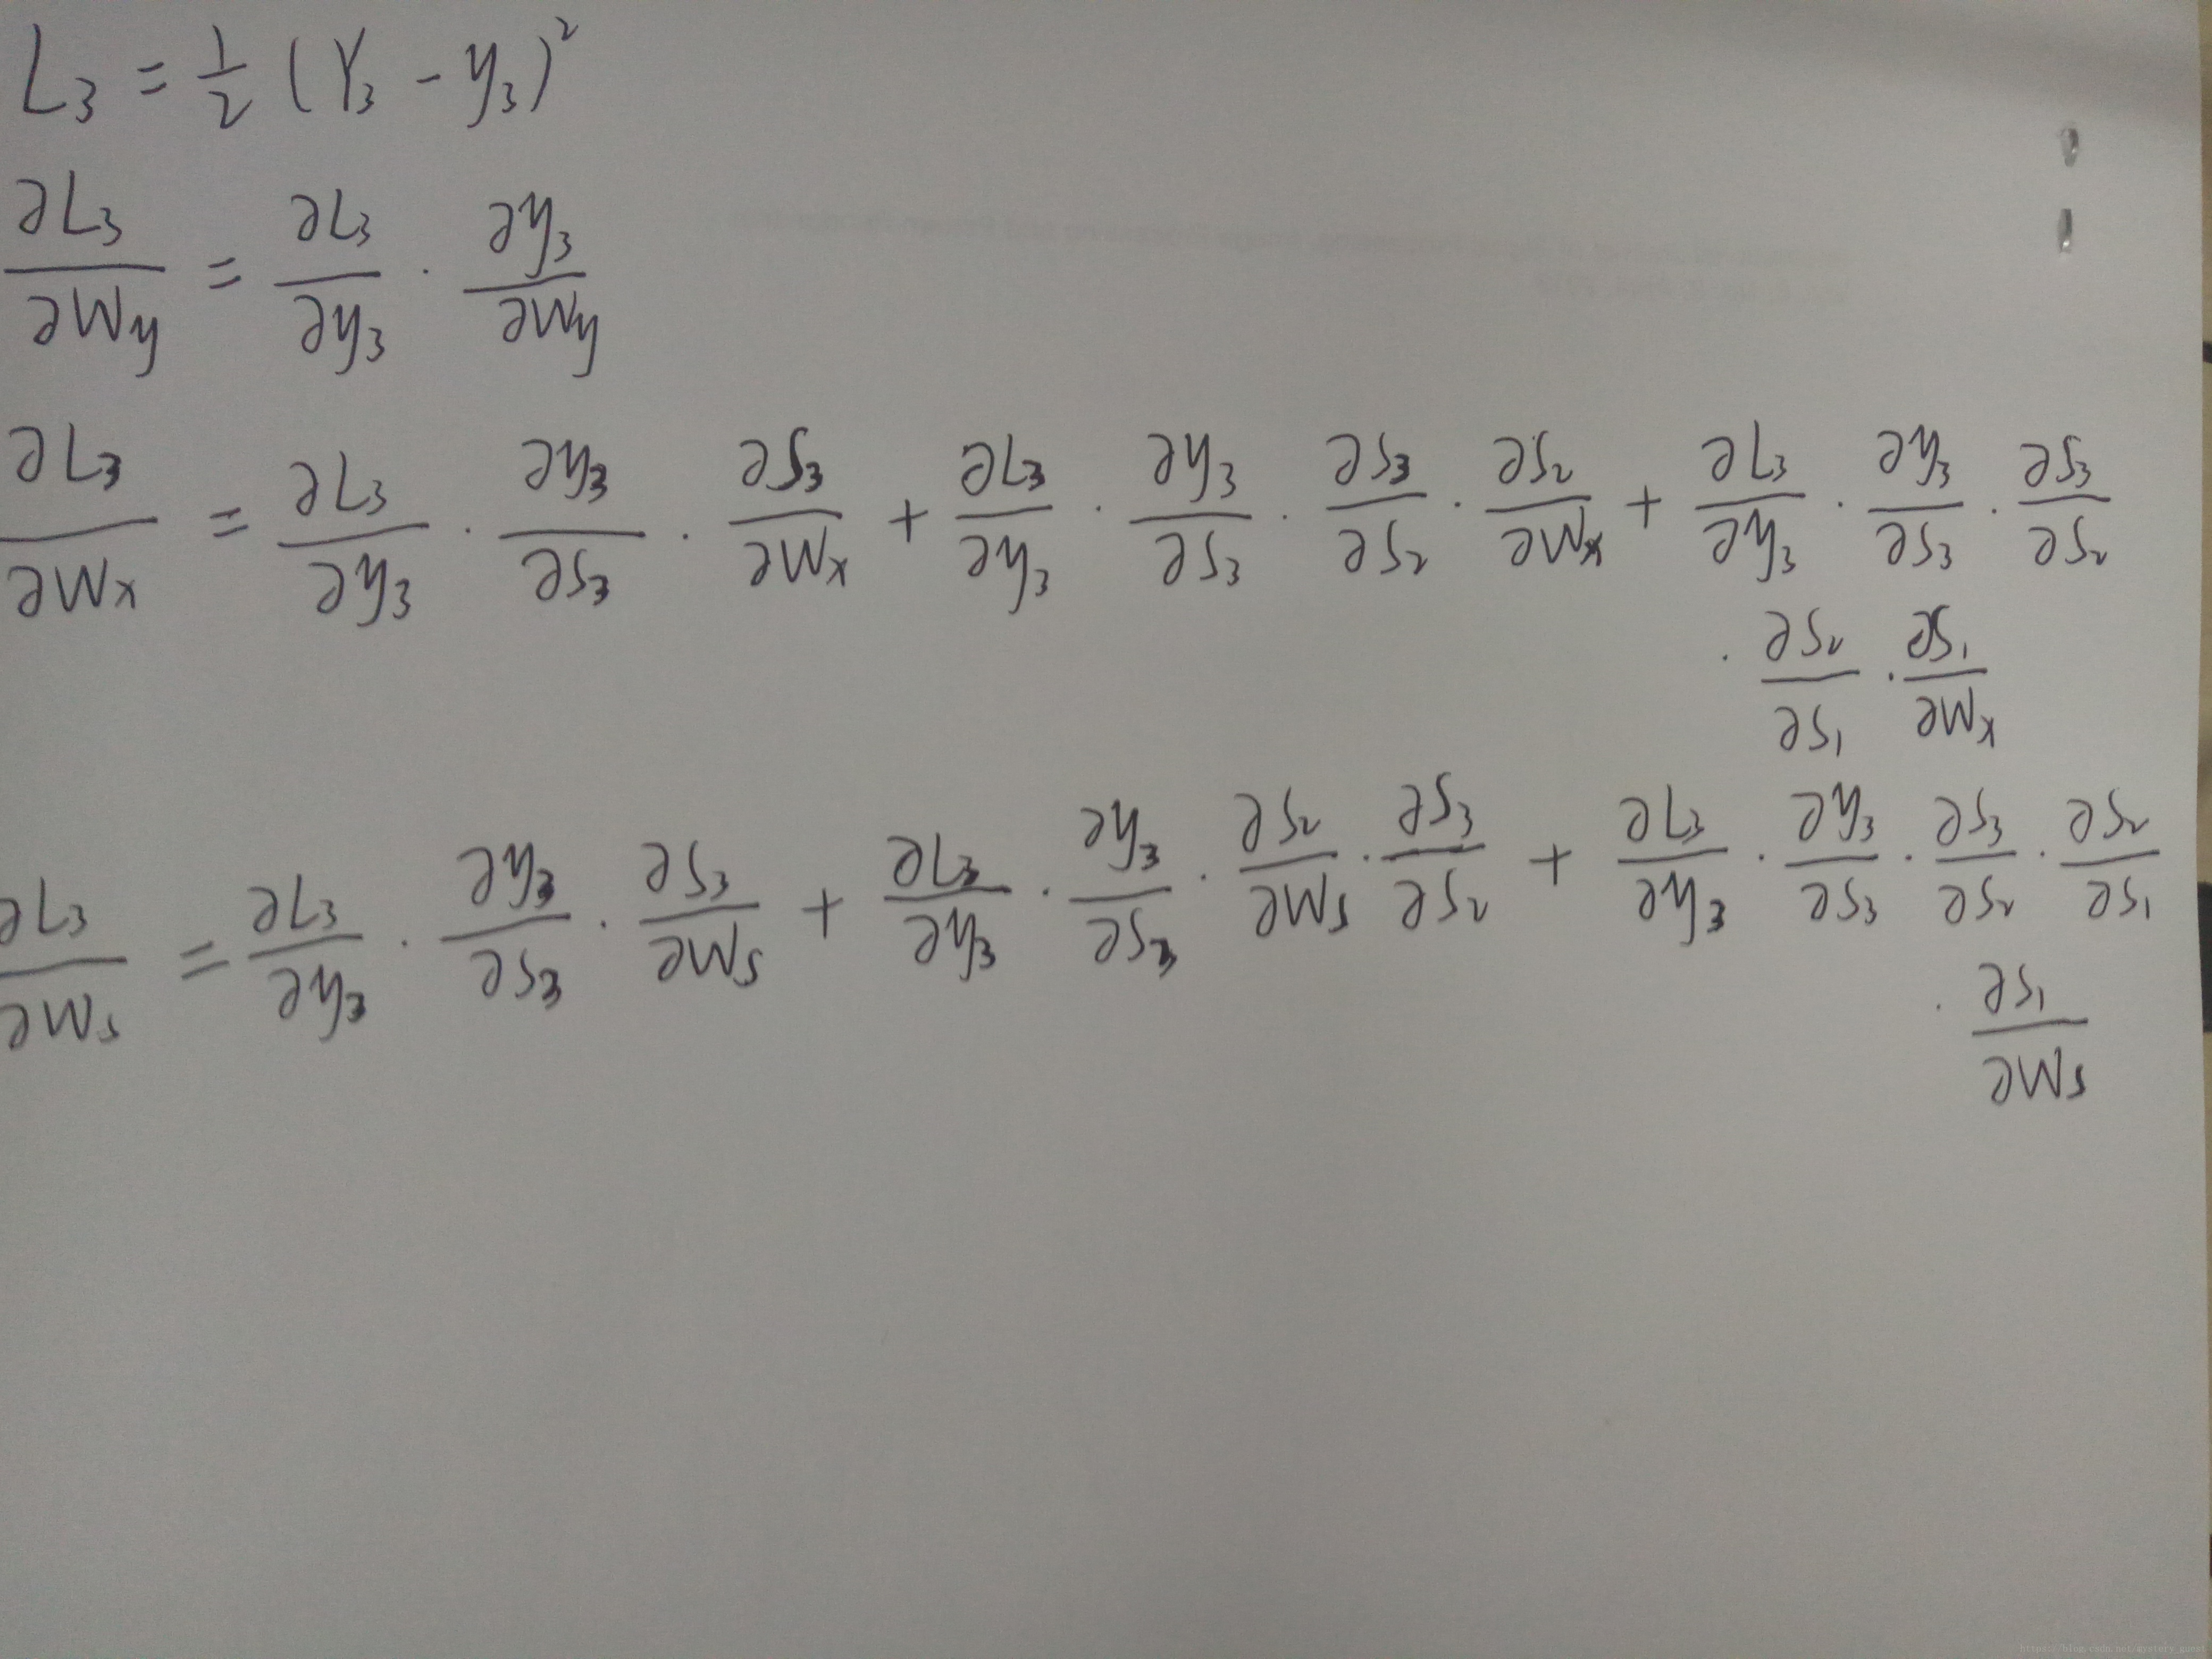 L₃ = 1/2 (Y₃ - y₃)²
∂L₃/∂Wy = ∂L₃/∂y₃ · ∂y₃/∂Wy
∂L₃/∂Wx = ∂L₃/∂y₃ · ∂y₃/∂S₃ · ∂S₃/∂Wx + ∂L₃/∂y₃ · ∂y₃/∂S₃ · ∂S₃/∂S₂ · ∂S₂/∂Wx + ∂L₃/∂y₃ · ∂y₃/∂S₃ · ∂S₃/∂S₂
· ∂S₂/∂S₁ · ∂S₁/∂Wx
∂L₃/∂Ws = ∂L₃/∂y₃ · ∂y₃/∂S₃ · ∂S₃/∂Ws + ∂L₃/∂y₃ · ∂y₃/∂S₃ · ∂S₂/∂Ws · ∂S₃/∂S₂ + ∂L₃/∂y₃ · ∂y₃/∂S₃ · ∂S₃/∂S₂ · ∂S₂/∂S₁
· ∂S₁/∂Ws